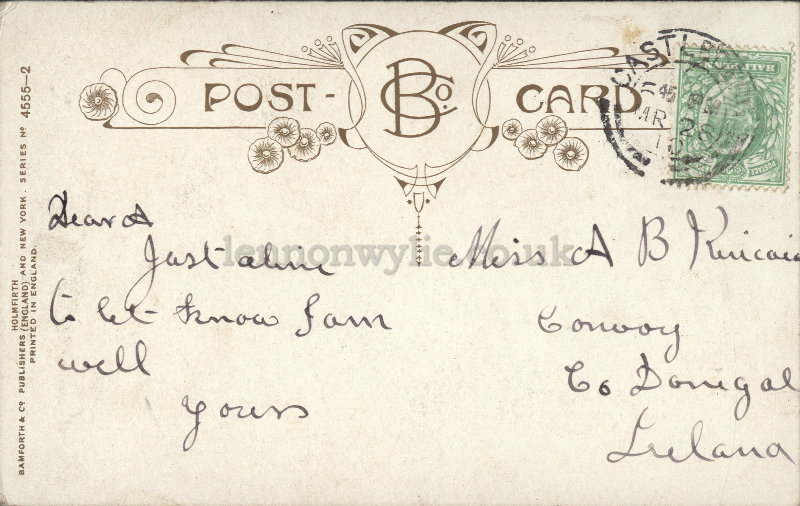 POST-CARD
BCo.
BAMFORTH & Co PUBLISHERS (ENGLAND) AND NEW YORK. SERIES No 4555-2
HOLMFIRTH
PRINTED IN ENGLAND.
lennonwylie.co.uk
Dear A
Just a line
to let know I am
well
yours
Miss A B Kincaid
Convoy
Co Donegal
Ireland